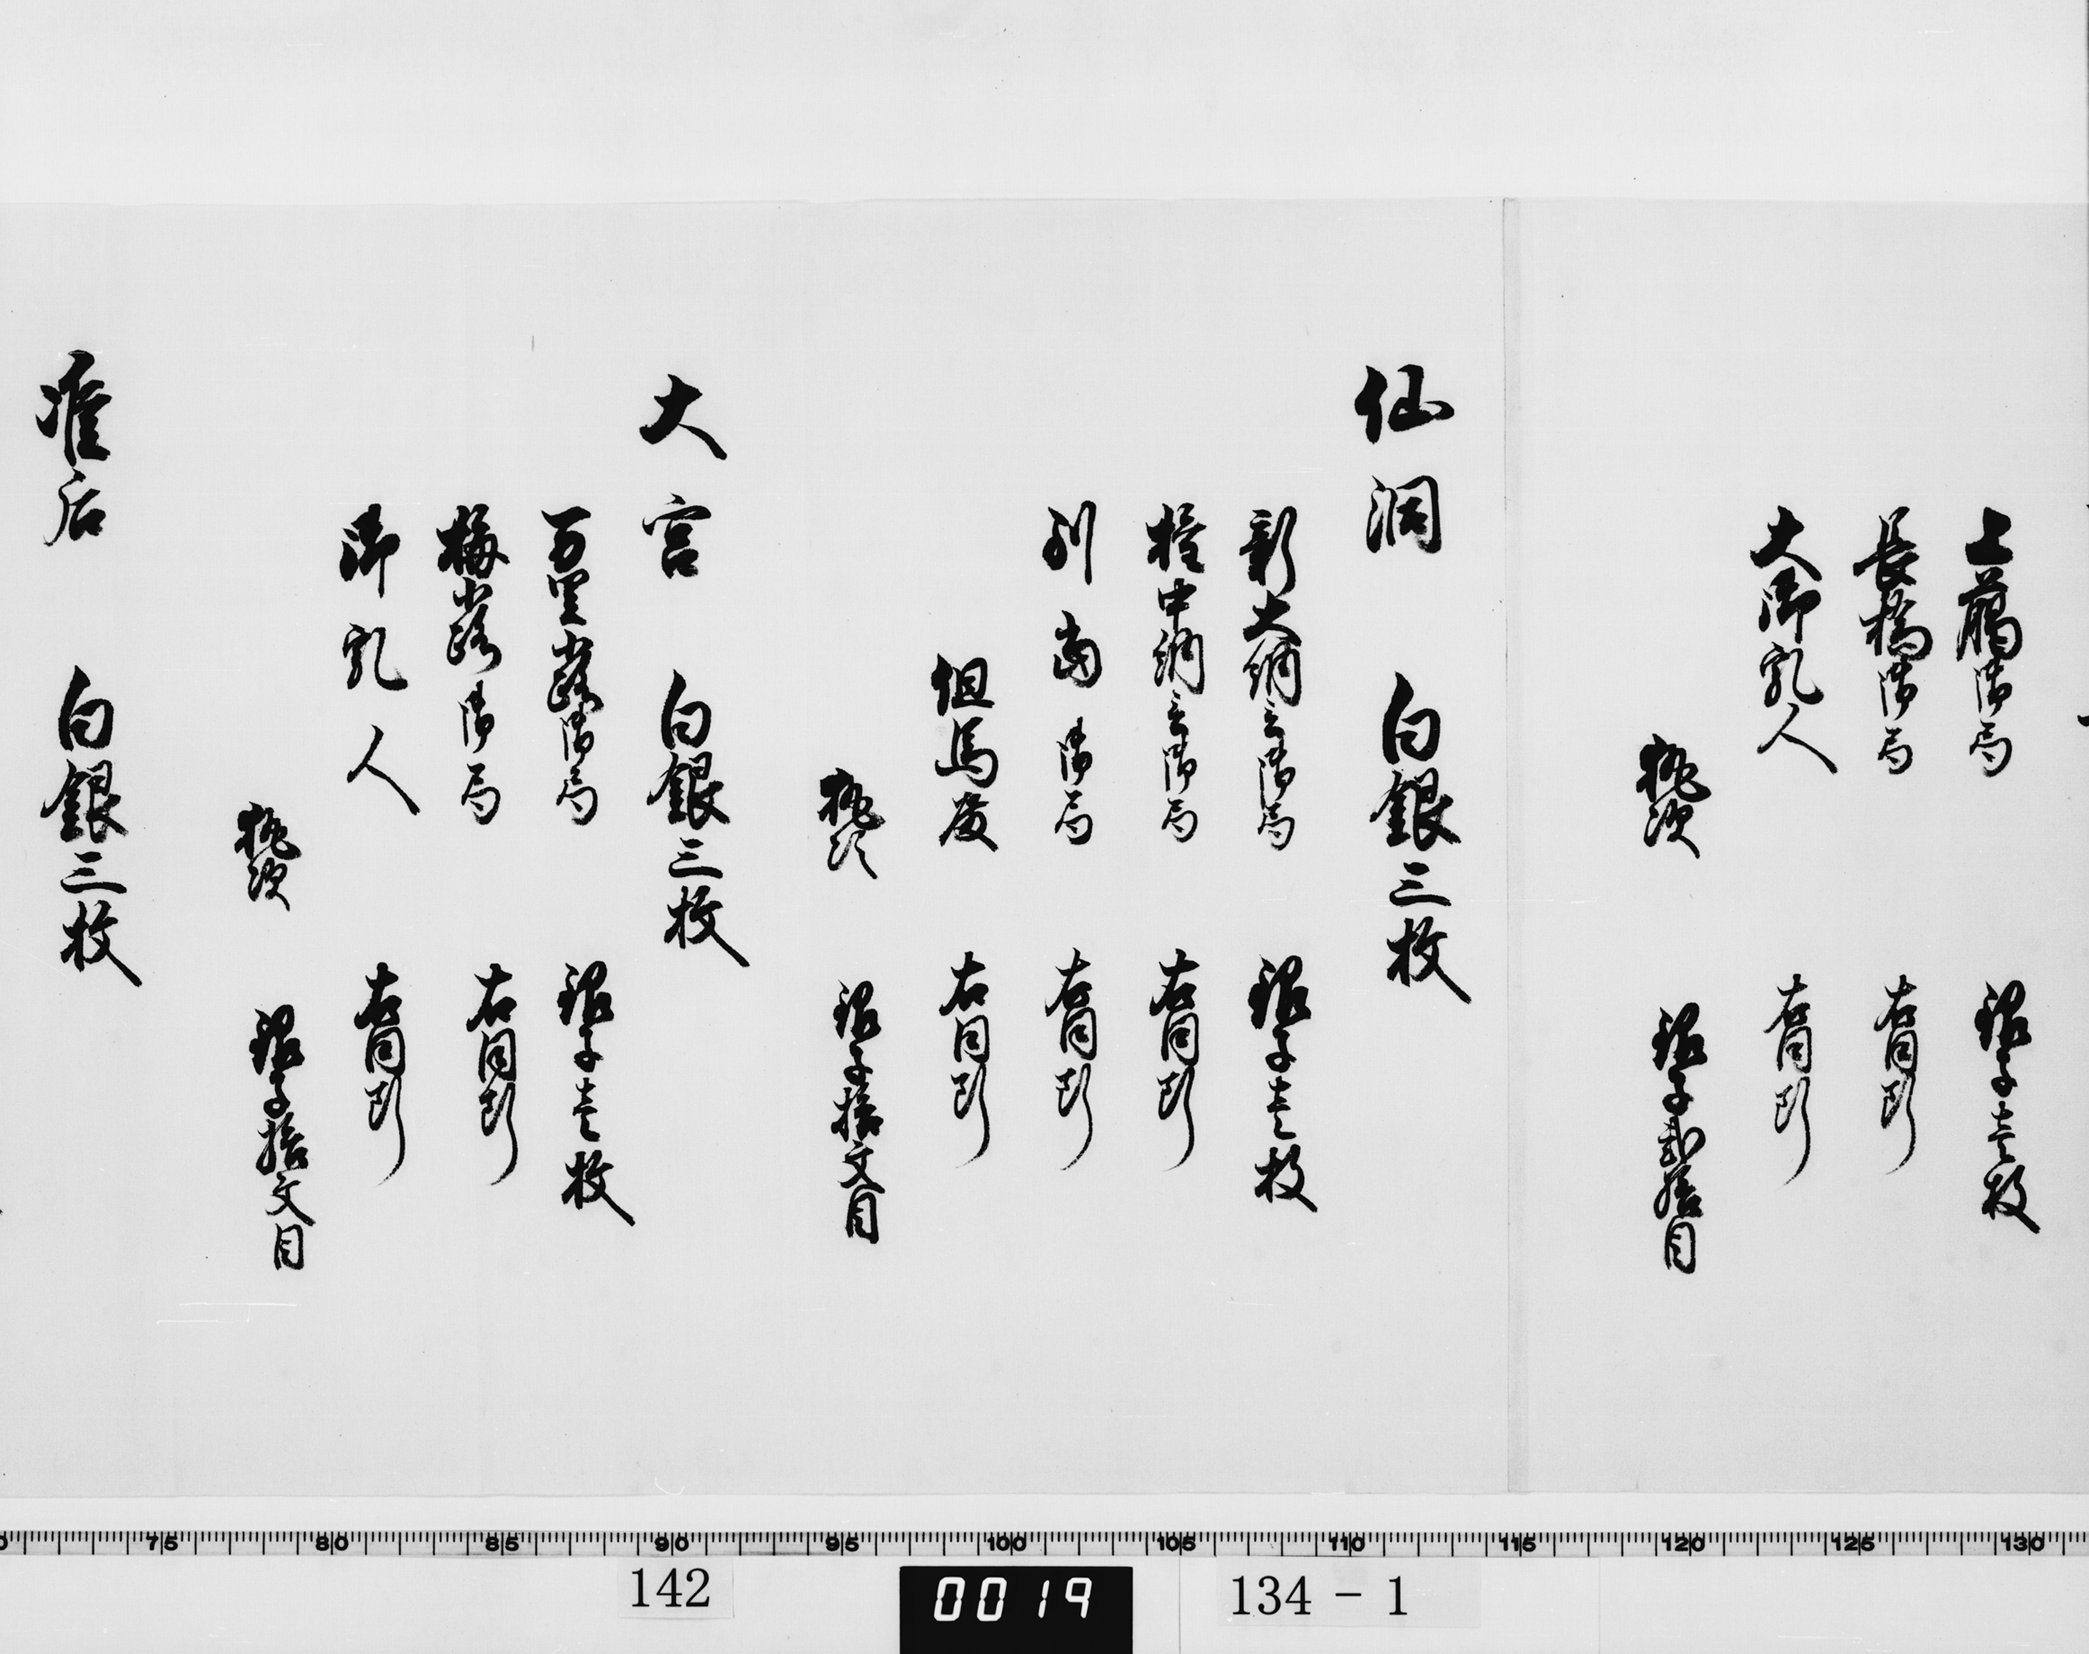 上臈御局 銀子壱枚
長橋御局 右同断
大御乳人 右同断
執次 銀子弐拾目
仙洞 白銀三枚
新大納言御局 銀子壱枚
権中納言御局 右同断
別当御局 右同断
但馬殿 右同断
執次 銀子拾文目
大宮 白銀三枚
万里小路御局 銀子壱枚
梅小路御局 右同断
御乳人 右同断
執次 銀子拾文目
准后 白銀三枚
75 80 85 90 95 100 105 110 115 120 125 130
142 0019 134-1